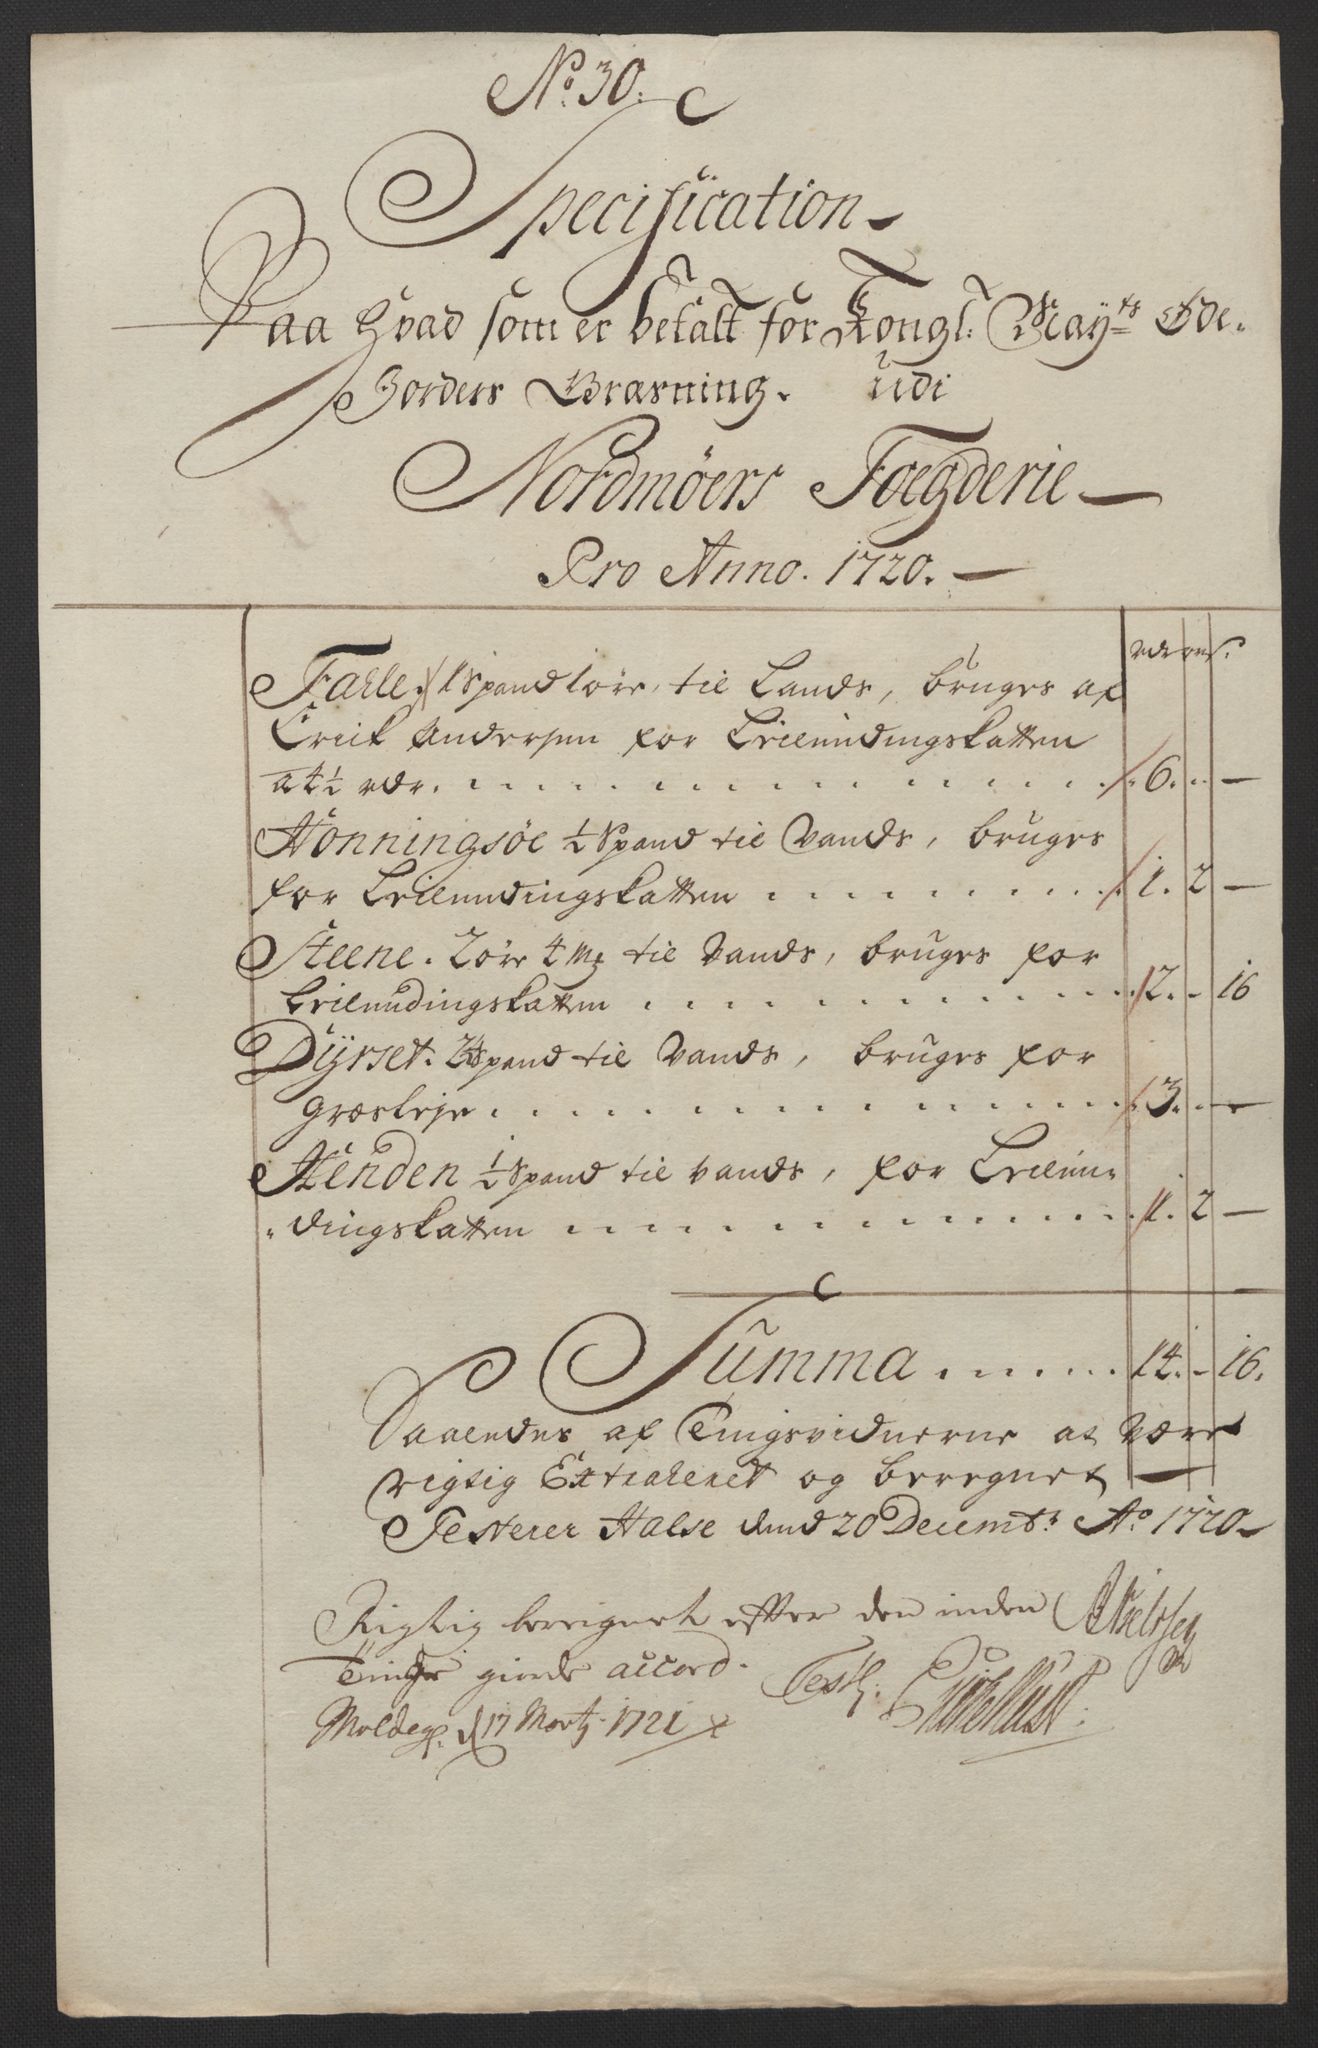 No. 30.
Specification
Paa Hvad som er betalt for Kongl. Mayts Øde-
Jorders Græsning. udi
Nordmøers Foegderie
Pro Anno. 1720.
rdr ort s.
Fahle. 1 Spand 1 øre, til Lands, bruges af
Erick Andersen for Leilendingskatten
a 4½ rdr. . . . 6. - —
Honningsøe ½ Spand til Vands, bruges
for Leilendingskatten . . . 1. 2 —
Steene. 2 øre 4 mk til Vands, bruges for
Leilendingskatten . . . 2. - 16
Dyrset. 2 Spand til Vands, bruges for
Græsleje . . . 3. - —
Henden ½ Spand til vands, for Leilen-
dingskatten . . . 1. 2 —
Summa . . . 14. - 16.
Saaledes af Tingsvidnerne at være
rigtig Extraheret og beregnet
Testerer Halse dend 20 Decembr. Ao 1720
Rigtig bereignet efter den inden
Tinge giorde accord.
Molde d 17 Martz 1721
Test.